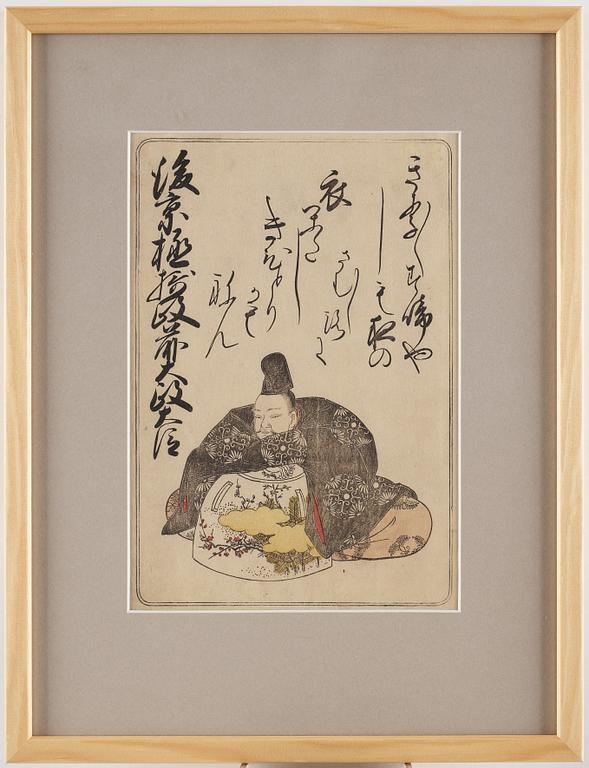 きり〳〵す啼や
しも夜の
さむしろに
衣かたし
きひとり
かも
ねん
後京極摂政前太政大臣